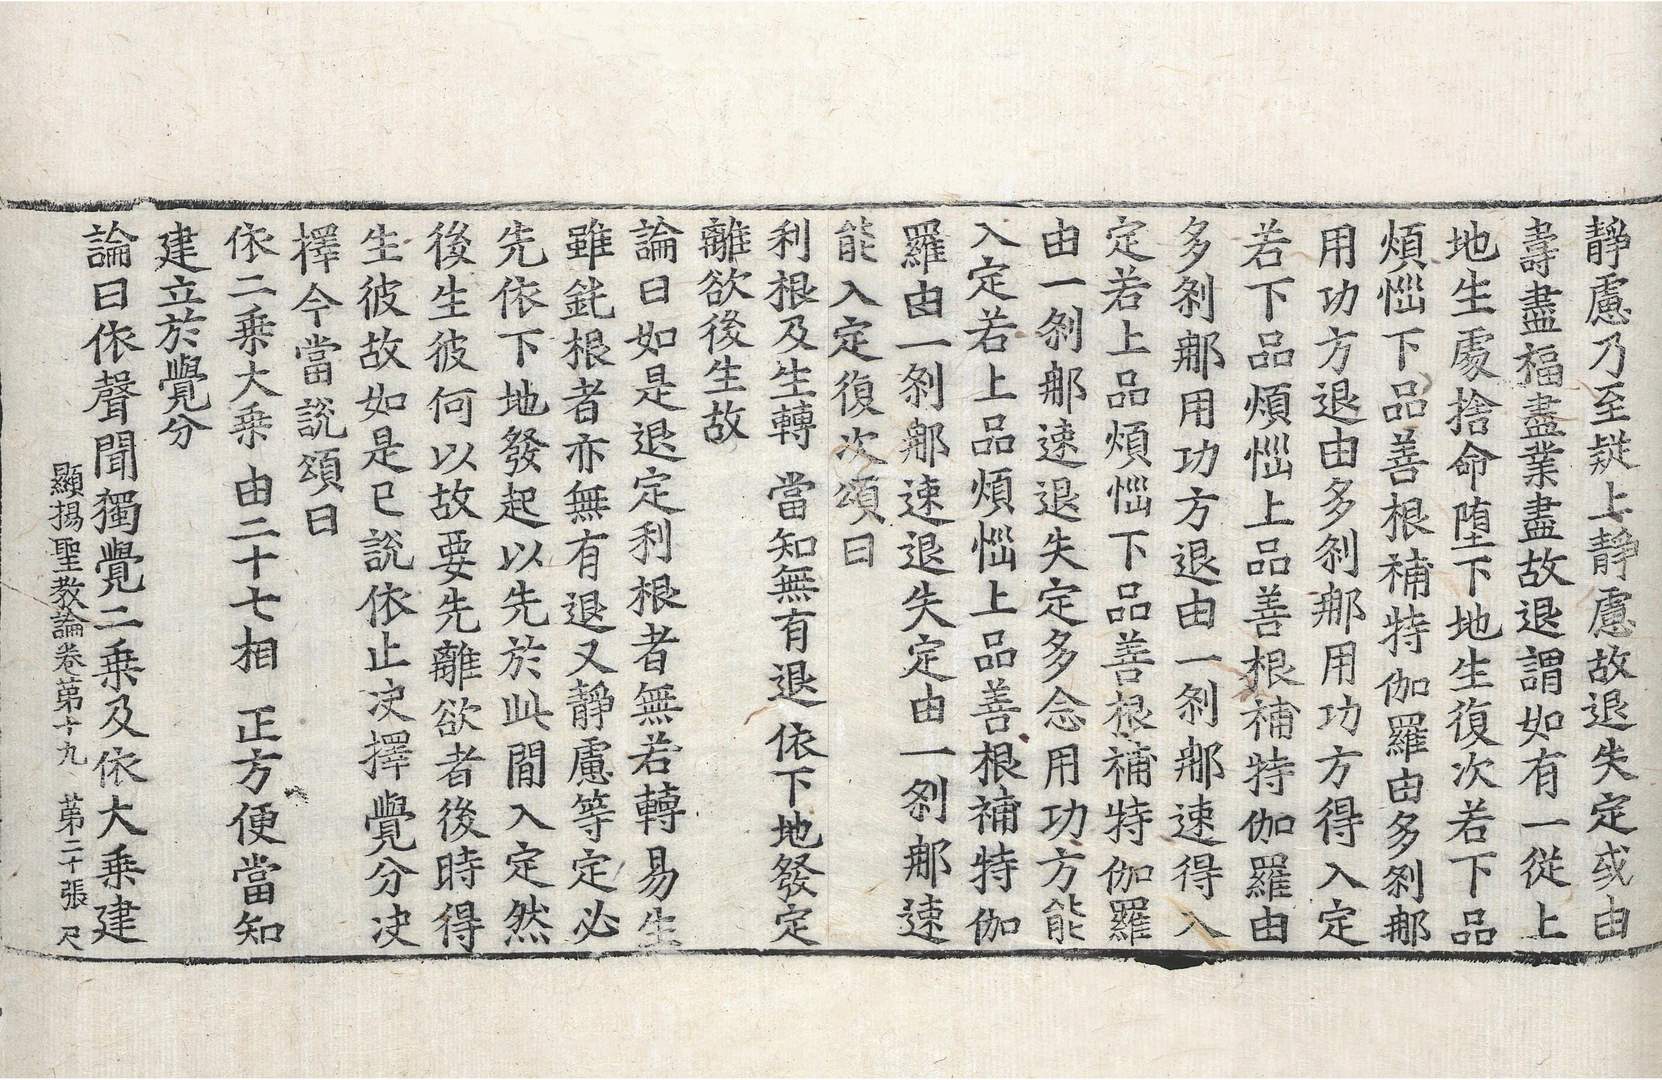 靜慮乃至疑上靜慮故退失定或由
壽盡福盡業盡故退謂如有一從上
地生處捨命墮下地生復次若下品
煩惱下品善根補特伽羅由多刹那
用功方退由多刹那用功方得入定
若下品煩惱上品善根補特伽羅由
多刹那用功方退由一刹那速得入
定若上品煩惱下品善根補特伽羅
由一刹那速退失定多念用功方能
入定若上品煩惱上品善根補特伽
羅由一刹那速退失定由一刹那速
能入定復次頌曰
利根及生轉 當知無有退 依下地發定
離欲後生故
論曰如是退定利根者無若轉易生
雖鈍根者亦無有退又靜慮等定必
先依下地發起以先於此間入定然
後生彼何以故要先離欲者後時得
生彼故如是已說依止決擇覺分決
擇今當說頌曰
依二乘大乘 由二十七相 正方便當知
建立於覺分
論曰依聲聞獨覺二乘及依大乘建
顯揚聖教論卷第十九 第二十張 尺